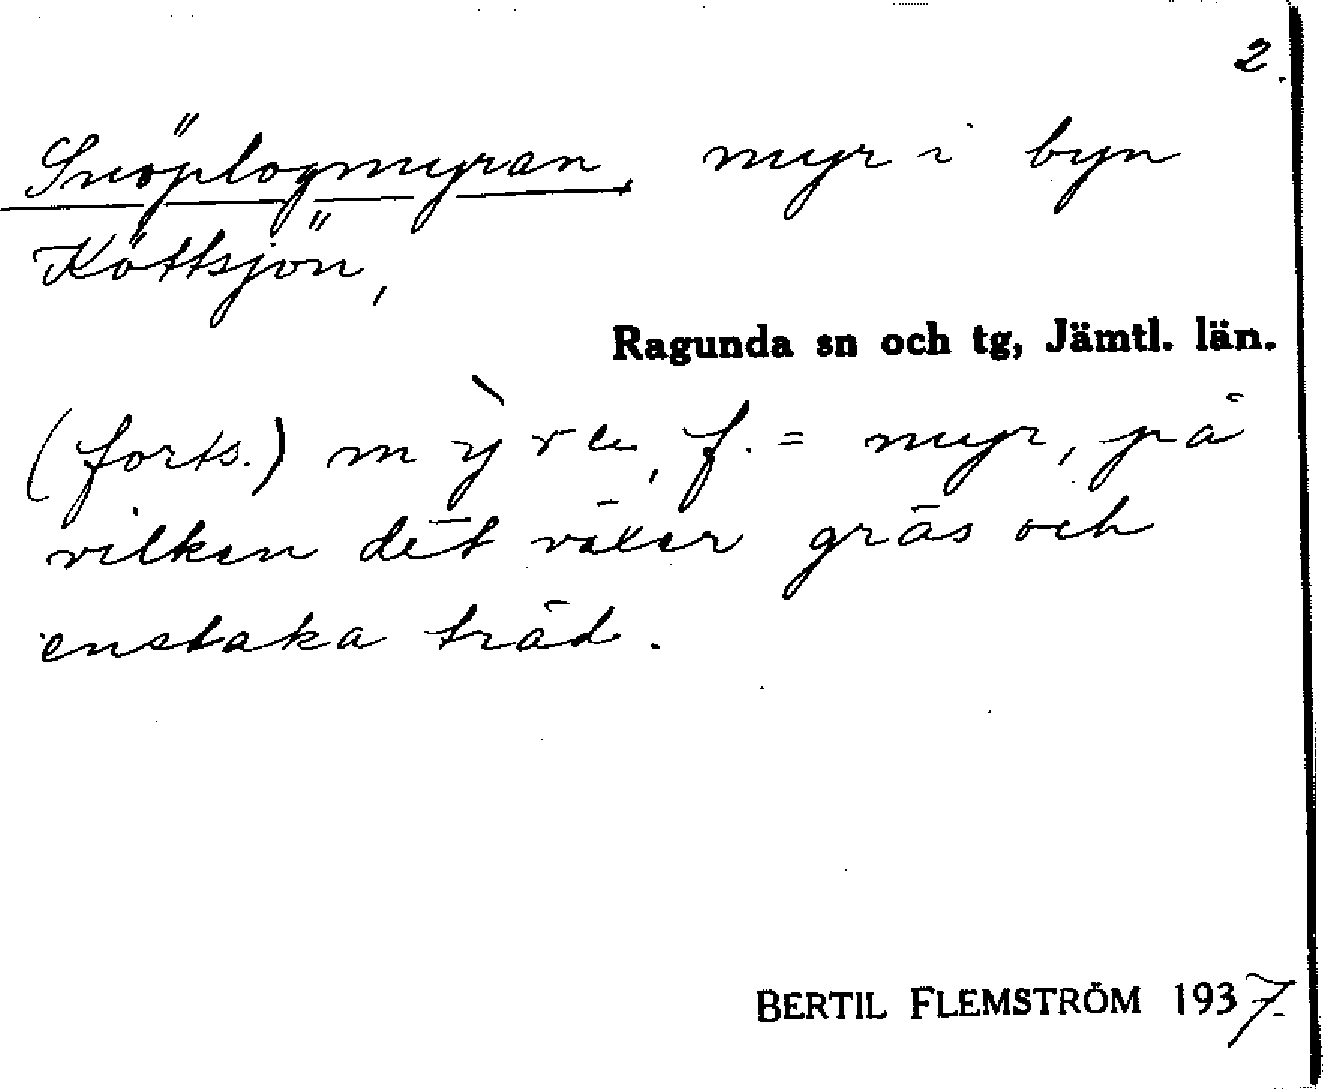 2.
Snöplogmyran, myr i byn
Köttsjön,
Ragunda sn och tg, Jämtl. län.
(forts.) f. = myr, på
vilken det växer gräs och
enstaka träd.
BERTIL FLEMSTRÖM 1937